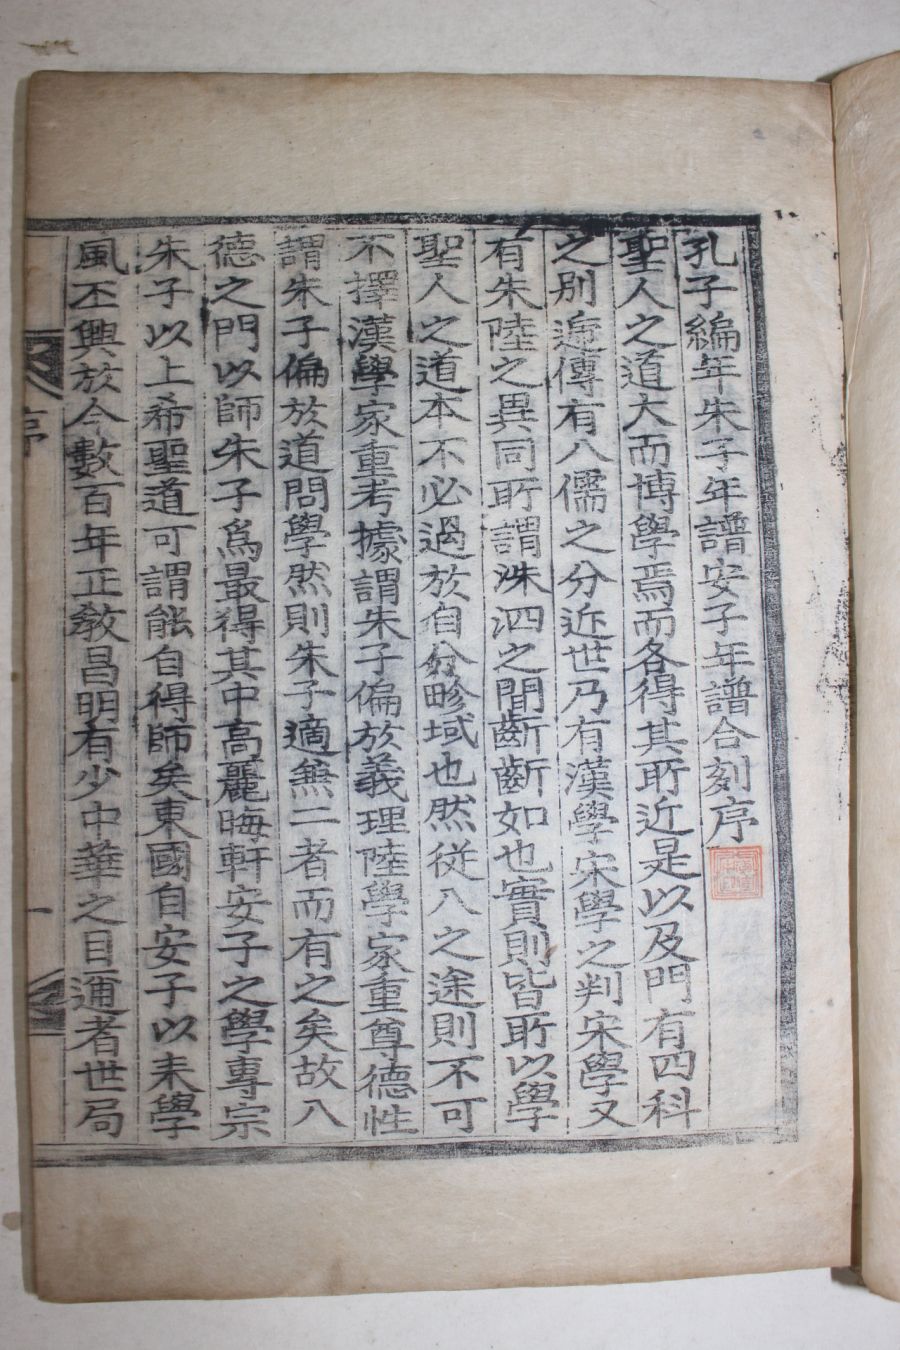 孔子編年朱子年譜安子年譜合刻序
聖人之道大而博學焉而各得其所近是以及門有四科
之別遞傳有八儒之分近世乃有漢學宋學之判宋學又
有朱陸之異同所謂洙泗之間齗齗如也實則皆所以學
聖人之道本不必過於自分畛域也然從入之途則不可
不擇漢學家重考據謂朱子偏於義理陸學家重尊德性
謂朱子偏於道問學然則朱子適無二者而有之矣故入
德之門以師朱子爲最得其中高麗晦軒安子之學專宗
朱子以上希聖道可謂能自得師矣東國自安子以来學
風丕興於今數百年正敎昌明有少中華之目邇者世局
序
一